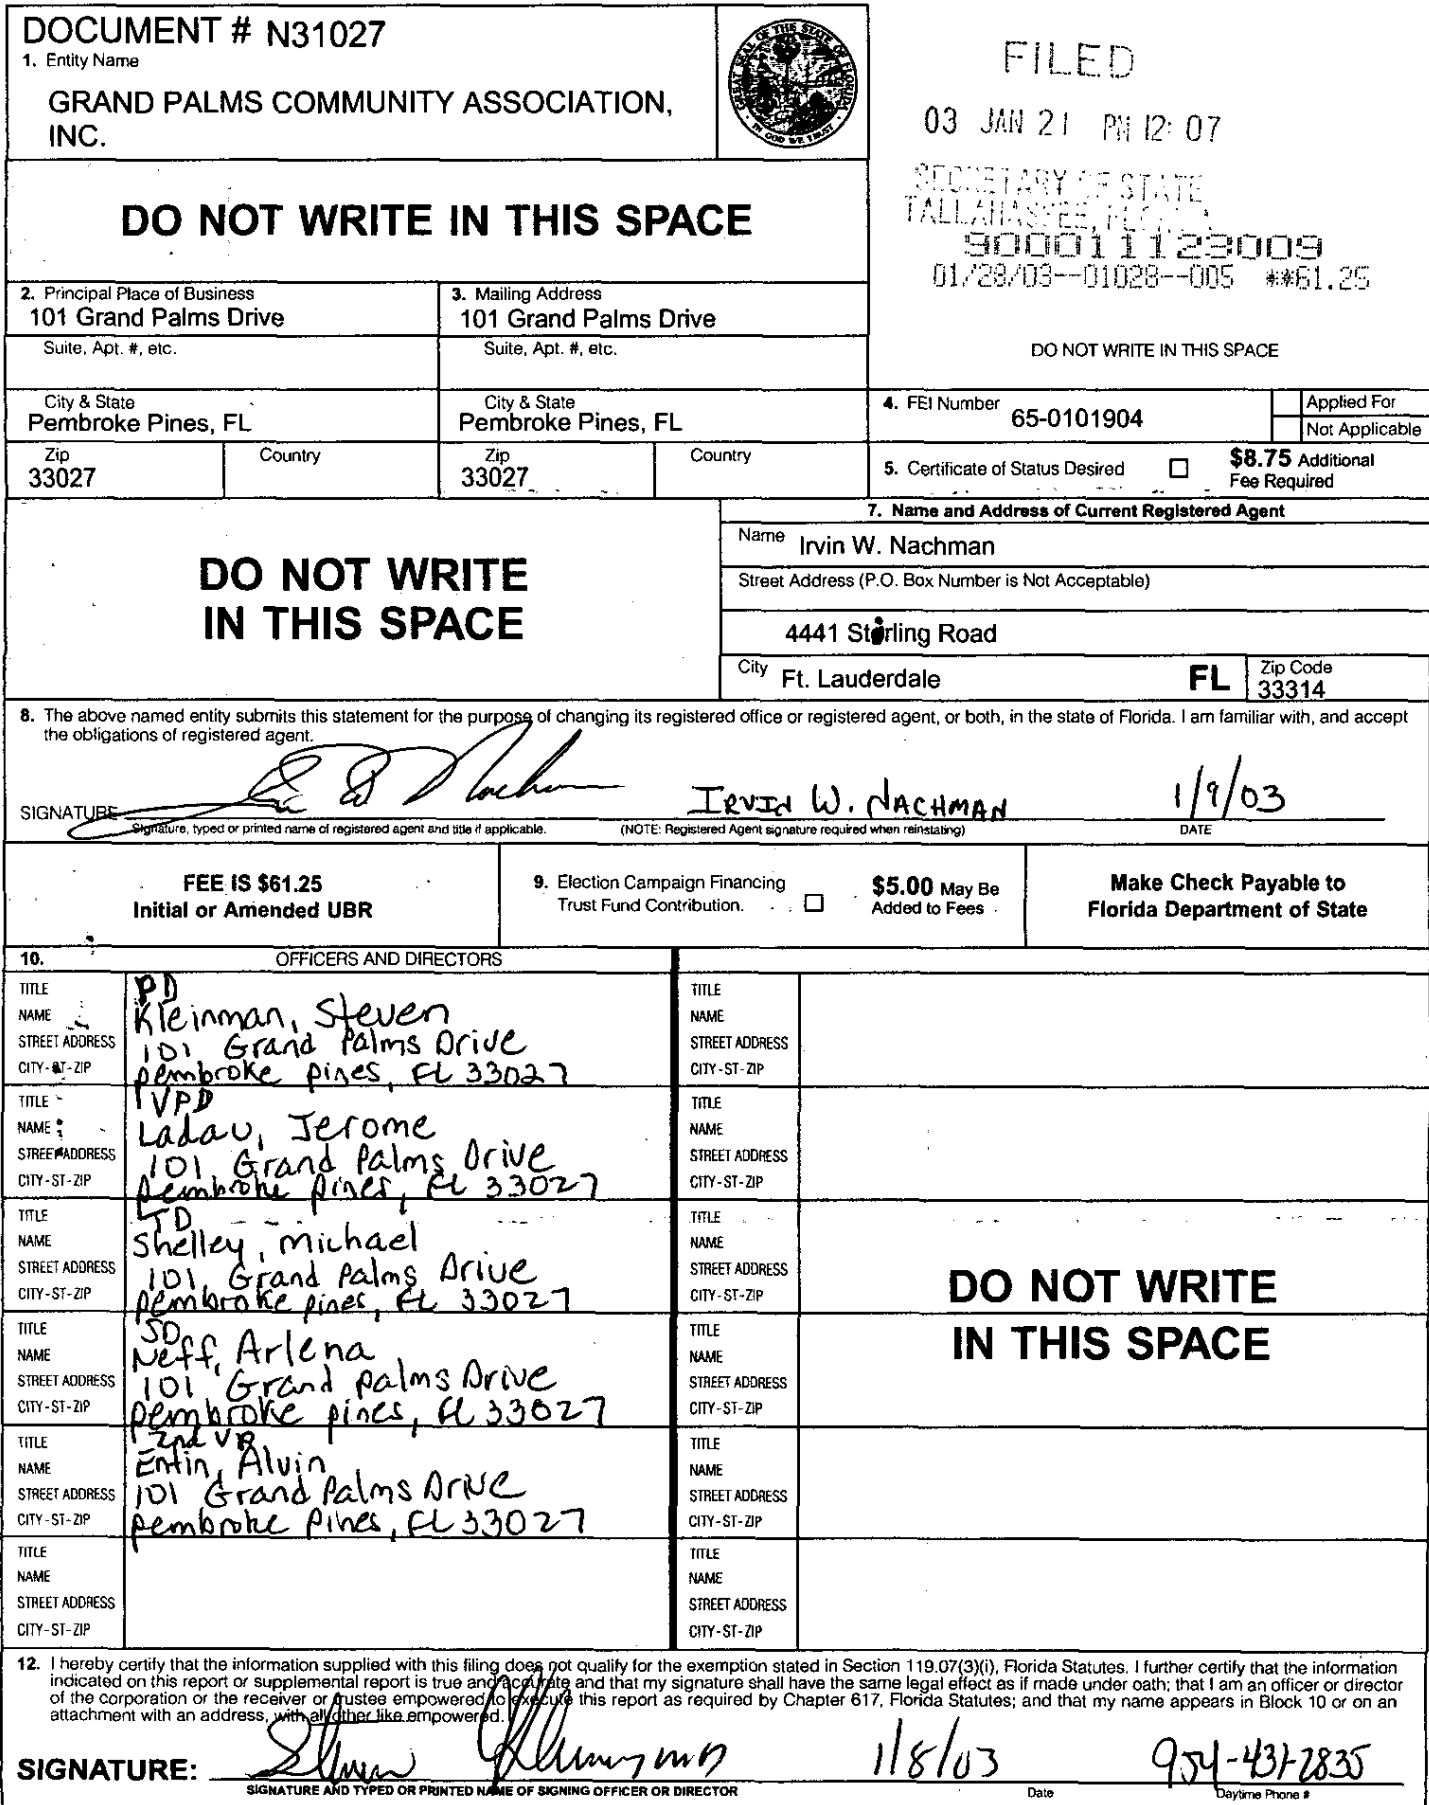 DOCUMENT # N31027
1. Entity Name
GRAND PALMS COMMUNITY ASSOCIATION,
INC.
GREAT SEAL OF THE STATE OF FLORIDA
IN GOD WE TRUST
FILED
03 JAN 21 PM 12:07
SECRETARY OF STATE
TALLAHASSEE, FLORIDA
900011123009
01/28/03--01028--005 **61.25
DO NOT WRITE IN THIS SPACE
DO NOT WRITE IN THIS SPACE
2. Principal Place of Business
101 Grand Palms Drive
3. Mailing Address
101 Grand Palms Drive
Suite, Apt. #, etc.
Suite, Apt. #, etc.
City & State
Pembroke Pines, FL
City & State
Pembroke Pines, FL
4. FEI Number 65-0101904
Applied For
Not Applicable
Zip
33027
Country
Zip
33027
Country
5. Certificate of Status Desired
$8.75 Additional
Fee Required
DO NOT WRITE
IN THIS SPACE
7. Name and Address of Current Registered Agent
Name Irvin W. Nachman
Street Address (P.O. Box Number is Not Acceptable)
4441 Stirling Road
City Ft. Lauderdale FL
Zip Code
33314
8. The above named entity submits this statement for the purpose of changing its registered office or registered agent, or both, in the state of Florida. I am familiar with, and accept
the obligations of registered agent.
SIGNATURE IRVIN W. NACHMAN 1/9/03
Signature, typed or printed name of registered agent and title if applicable. (NOTE: Registered Agent signature required when reinstating) DATE
FEE IS $61.25
Initial or Amended UBR
9. Election Campaign Financing
Trust Fund Contribution.
$5.00 May Be
Added to Fees
Make Check Payable to
Florida Department of State
10. OFFICERS AND DIRECTORS
TITLE PD
NAME Kleinman, Steven
STREET ADDRESS 101 Grand Palms Drive
CITY-ST-ZIP pembroke pines, FL 33027
TITLE
NAME
STREET ADDRESS
CITY-ST-ZIP
TITLE 1VPD
NAME Ladau, Jerome
STREET ADDRESS 101 Grand Palms Drive
CITY-ST-ZIP Pembroke pines, FL 33027
TITLE
NAME
STREET ADDRESS
CITY-ST-ZIP
TITLE TD
NAME Shelley, michael
STREET ADDRESS 101 Grand Palms Drive
CITY-ST-ZIP pembroke pines, FL 33027
TITLE
NAME
STREET ADDRESS
CITY-ST-ZIP
DO NOT WRITE
IN THIS SPACE
TITLE SD
NAME Neff, Arlena
STREET ADDRESS 101 Grand palms Drive
CITY-ST-ZIP pembroke pines, FL 33027
TITLE
NAME
STREET ADDRESS
CITY-ST-ZIP
TITLE 2nd VP
NAME Entin, Alvin
STREET ADDRESS 101 Grand Palms Drive
CITY-ST-ZIP pembroke Pines, FL 33027
TITLE
NAME
STREET ADDRESS
CITY-ST-ZIP
TITLE
NAME
STREET ADDRESS
CITY-ST-ZIP
TITLE
NAME
STREET ADDRESS
CITY-ST-ZIP
12. I hereby certify that the information supplied with this filing does not qualify for the exemption stated in Section 119.07(3)(i), Florida Statutes. I further certify that the information
indicated on this report or supplemental report is true and accurate and that my signature shall have the same legal effect as if made under oath; that I am an officer or director
of the corporation or the receiver or trustee empowered to execute this report as required by Chapter 617, Florida Statutes; and that my name appears in Block 10 or on an
attachment with an address, with all other like empowered.
SIGNATURE: 1/8/03 954-431-2835
SIGNATURE AND TYPED OR PRINTED NAME OF SIGNING OFFICER OR DIRECTOR Date Daytime Phone #